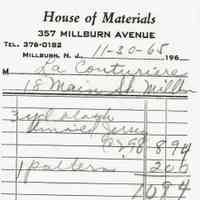 House of Materials
357 MILLBURN AVENUE
TEL. 376-0182
MILLBURN, N. J., 11-30-65 196
M La Couturiere
18 Main St. Mill
3 yd
Jersey
@2.98 894
1 pattern 200
1094